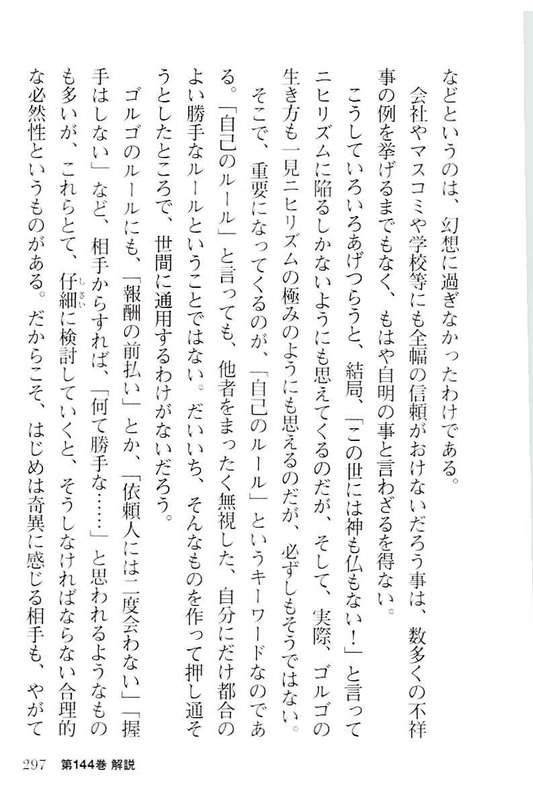 などというのは、幻想に過ぎなかったわけである。
会社やマスコミや学校等にも全幅の信頼がおけないだろう事は、数多くの不祥
事の例を挙げるまでもなく、もはや自明の事と言わざるを得ない。
こうしていろいろあげつらうと、結局、「この世には神も仏もない！」と言って
ニヒリズムに陥るしかないようにも思えてくるのだが、そして、実際、ゴルゴの
生き方も一見ニヒリズムの極みのようにも思えるのだが、必ずしもそうではない。
そこで、重要になってくるのが、「自己のルール」というキーワードなのであ
る。「自己のルール」と言っても、他者をまったく無視した、自分にだけ都合の
よい勝手なルールということではない。だいいち、そんなものを作って押し通そ
うとしたところで、世間に通用するわけがないだろう。
ゴルゴのルールにも、「報酬の前払い」とか、「依頼人には二度会わない」「握
手はしない」など、相手からすれば、「何て勝手な……」と思われるようなもの
も多いが、これらとて、仔細に検討していくと、そうしなければならない合理的
しさい
な必然性というものがある。だからこそ、はじめは奇異に感じる相手も、やがて
297 第144巻 解説